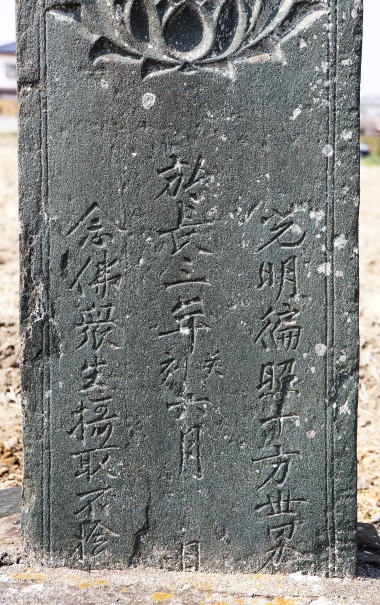 光明徧照十方世界
弘長三年癸亥六月 日
念佛衆生攝取不捨